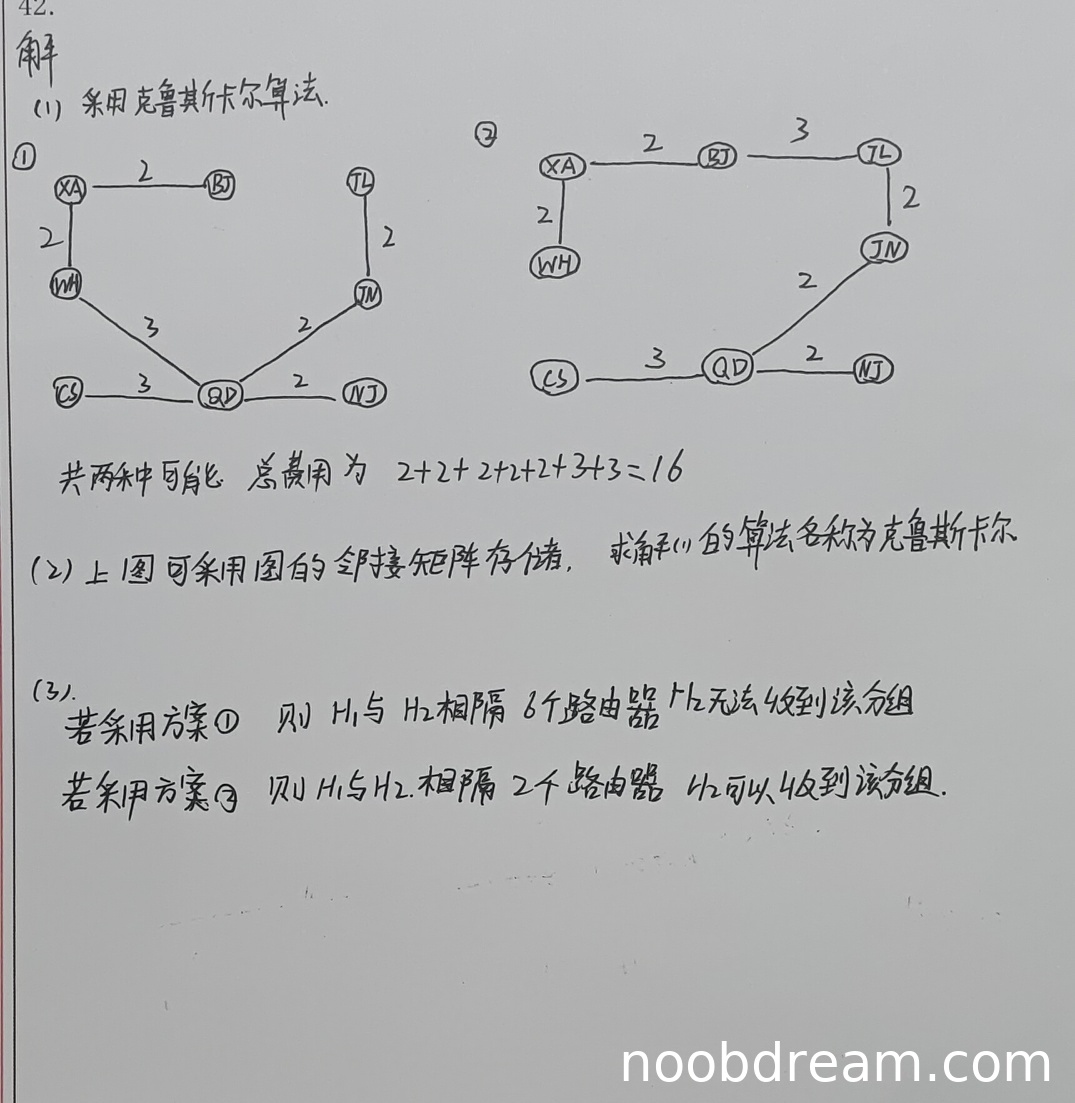 42.
解
(1) 采用克鲁斯卡尔算法.
① XA 2 BJ TL
2 2
WH JN
3 2
CS 3 QD 2 NJ
② XA 2 BJ 3 TL
2 2
WH JN
2
CS 3 QD 2 NJ
共两种可能 总费用为 2+2+2+2+2+3+3=16
(2) 上图可采用图的邻接矩阵存储, 求解(1)的算法名称为克鲁斯卡尔
(3).
若采用方案① 则 H1与 H2相隔 6个路由器 H2无法收到该分组
若采用方案② 则 H1与H2.相隔 2个路由器 H2可以收到该分组.
noobdream.com